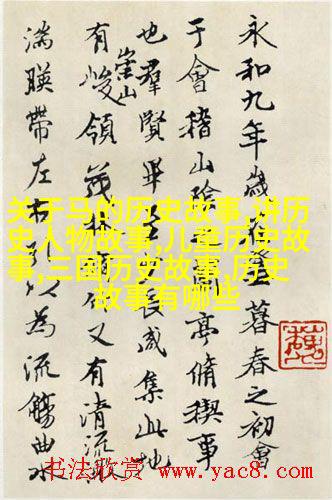 永和九年歲暮春之初會
于會稽山陰蘭亭脩稧事
也羣賢畢至少長咸集此地
有崇山峻領茂林脩竹又有清流激
湍暎帶左右引以為流觴曲水
关于马的历史故事,讲历
史人物故事,儿童历史故
事,三国历史故事,历史
故事有哪些
书法欣赏 www.yac8.com